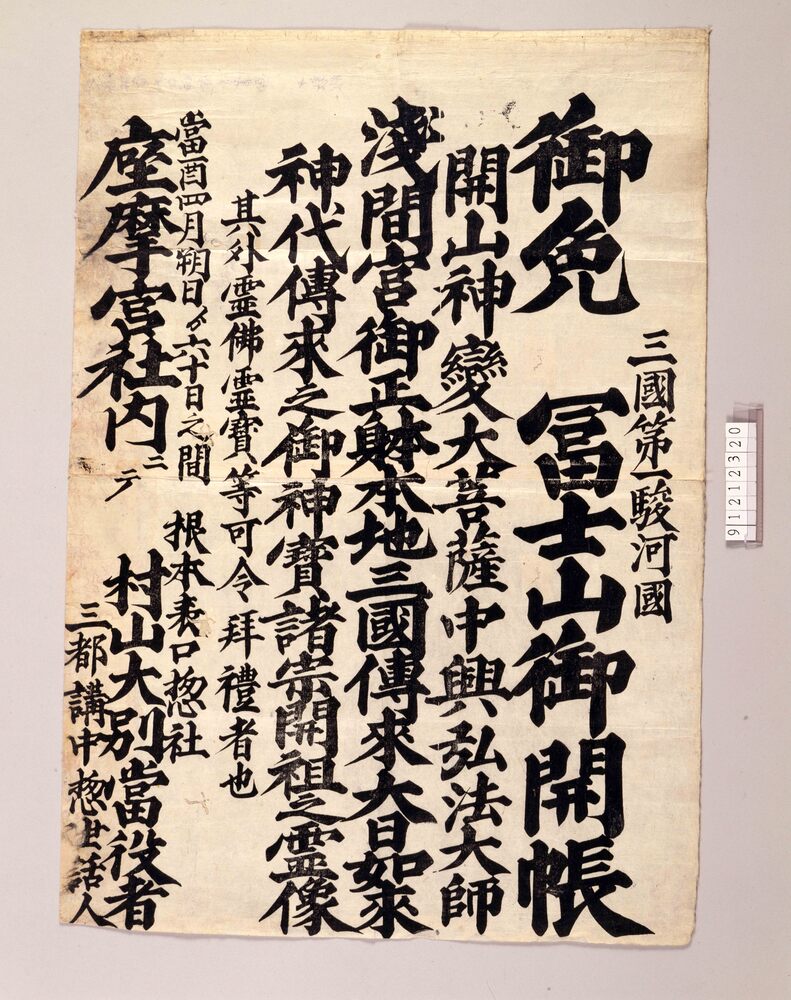 三國第一駿河國
御免 冨士山御開帳
開山神變大菩薩中興弘法大師
淺間宮御正躰本地三國傳來大日如來
神代傳來之御神寶諸宗開祖之霊像
其外霊佛霊寶等可令拜禮者也
當酉四月朔日ゟ六十日之間
座摩宮社内ニテ
根本表口惣社
村山大別當役者
三都講中惣世話人
91212320